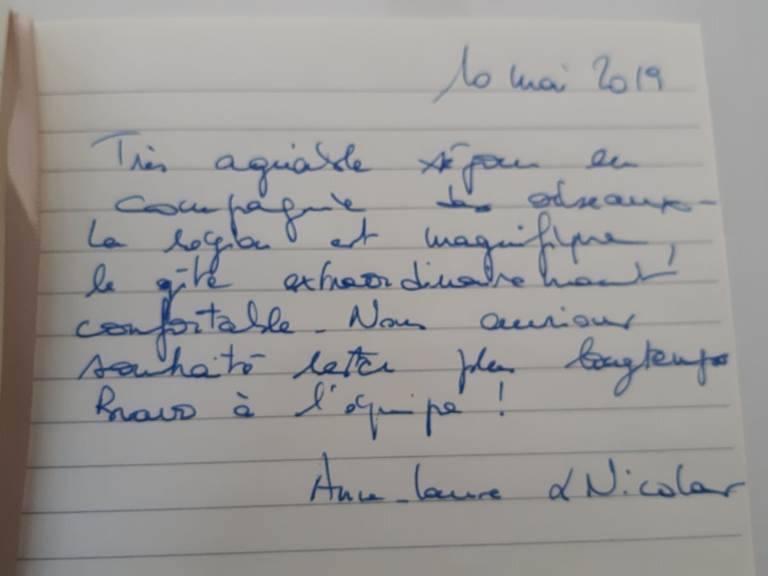 10 mai 2019
Très agréable séjour en
compagnie des oiseaux-
La région est magnifique,
le gîte extraordinairement
confortable. Nous aurions
souhaité rester plus longtemps
Bravo à l'équipe !
Anne-Laure & Nicolas